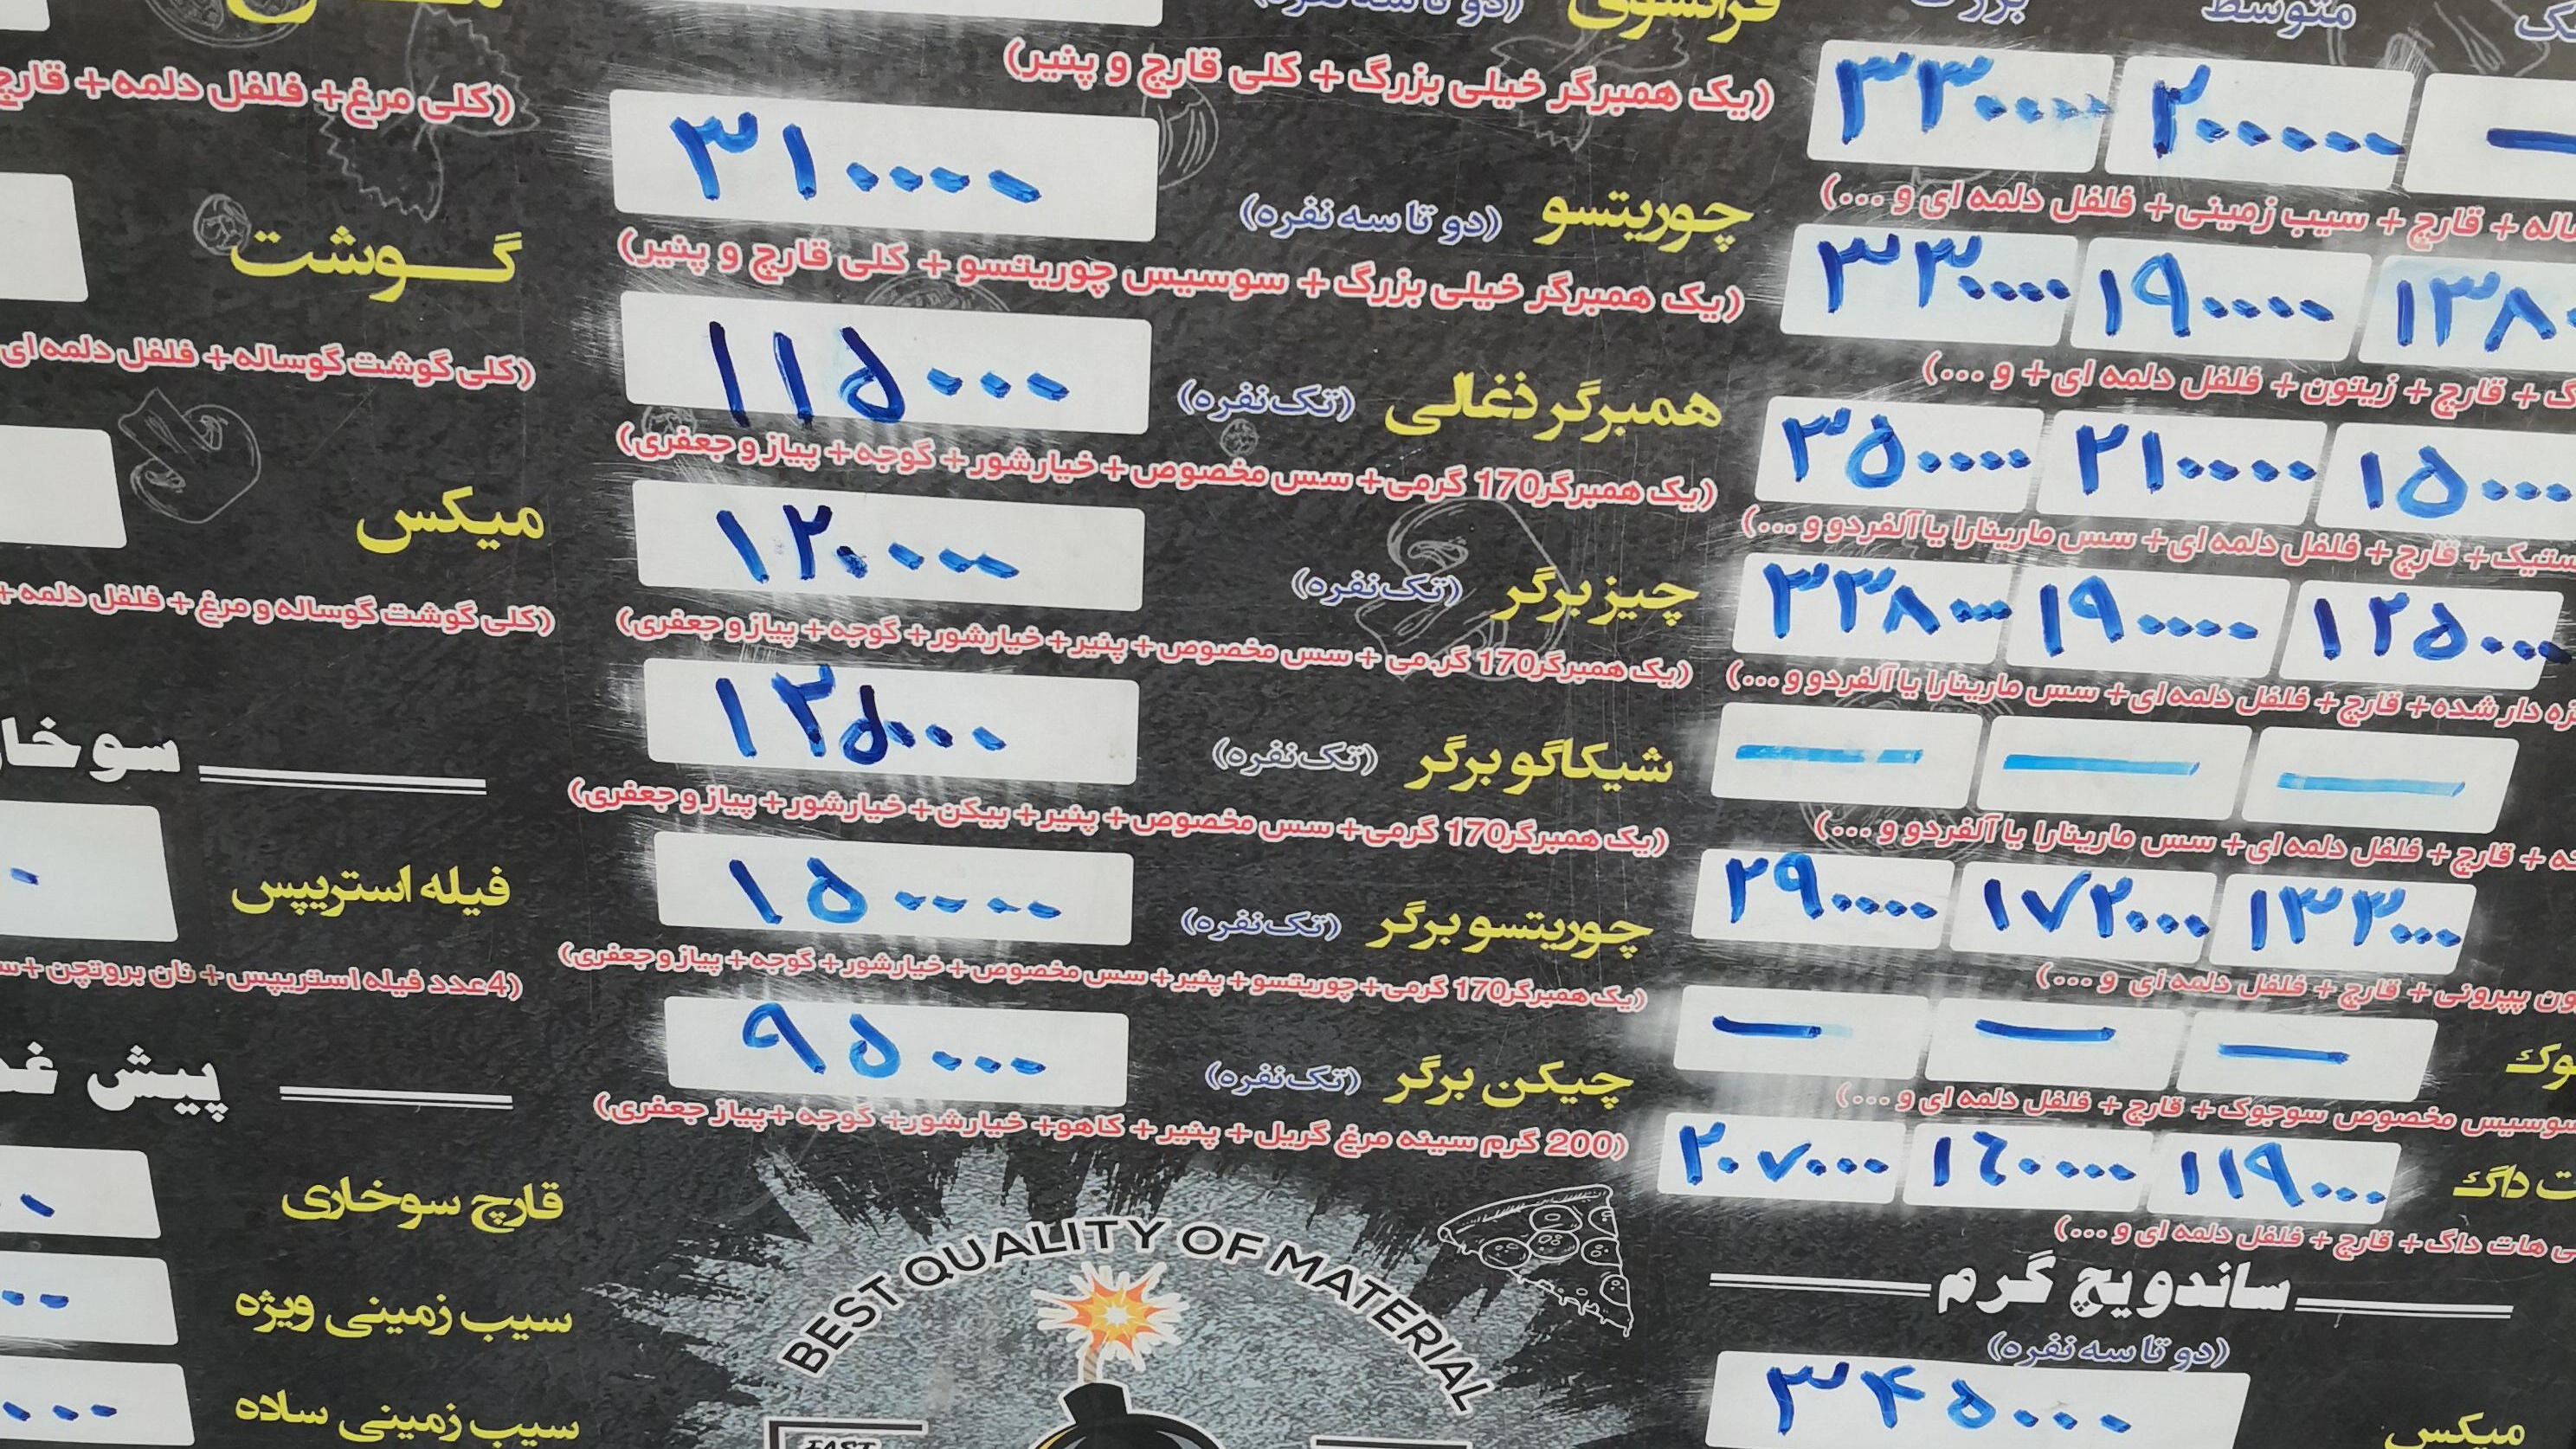 بزرگ متوسط
۳۳۰۰۰۰ ۲۰۰۰۰۰ —
+ قارچ + سیب زمینی + فلفل دلمه ای و ...)
۳۳۰۰۰۰ ۱۹۰۰۰۰ ۱۳۸۰
+ قارچ + زیتون + فلفل دلمه ای + و ...)
۳۵۰۰۰۰ ۲۱۰۰۰۰ ۱۵۰۰۰
+ قارچ + فلفل دلمه ای + سس مارینارا یا آلفردو و ...)
۳۳۸۰۰۰ ۱۹۰۰۰۰ ۱۲۵۰۰۰
دار شده + قارچ + فلفل دلمه ای + سس مارینارا یا آلفردو و ...)
— — —
+ قارچ + فلفل دلمه ای + سس مارینارا یا آلفردو و ...)
۲۹۰۰۰۰ ۱۷۲۰۰۰ ۱۳۳۰۰۰
پپرونی + قارچ + فلفل دلمه ای و ...)
— — —
سوسیس مخصوص سوجوک + قارچ + فلفل دلمه ای و ...)
داگ ۱۱۹۰۰۰ ۱۶۰۰۰۰ ۲۰۷۰۰۰
هات داگ + قارچ + فلفل دلمه ای و ...)
ساندویچ گرم
(دو تا سه نفره)
میکس ۳۴۵۰۰۰
فرانسوی (دو تا سه نفره)
(یک همبرگر خیلی بزرگ + کلی قارچ و پنیر)
چوریتسو (دو تا سه نفره) ۳۱۰۰۰۰
(یک همبرگر خیلی بزرگ + سوسیس چوریتسو + کلی قارچ و پنیر)
همبرگر ذغالی (تک نفره) ۱۱۵۰۰۰
(یک همبرگر 170 گرمی + سس مخصوص + خیارشور + گوجه + پیاز و جعفری)
چیز برگر (تک نفره) ۱۲۰۰۰۰
(یک همبرگر 170 گر.می + سس مخصوص + پنیر + خیارشور + گوجه + پیاز و جعفری)
شیکاگو برگر (تک نفره) ۱۳۵۰۰۰
(یک همبرگر 170 گرمی + سس مخصوص + پنیر + بیکن + خیارشور + پیاز و جعفری)
چوریتسو برگر (تک نفره) ۱۵۰۰۰۰
(یک همبرگر 170 گرمی + چوریتسو + پنیر + سس مخصوص + خیارشور + گوجه + پیاز و جعفری)
چیکن برگر (تک نفره) ۹۵۰۰۰
(200 گرم سینه مرغ گریل + پنیر + کاهو + خیارشور + گوجه + پیاز جعفری)
BEST QUALITY OF MATERIAL
FAST
(کلی مرغ + فلفل دلمه + قارچ
گوشت
(کلی گوشت گوساله + فلفل دلمه ای
میکس
(کلی گوشت گوساله و مرغ + فلفل دلمه +
فیله استریپس
(4عدد فیله استریپس + نان بروتچن +
پیش
قارچ سوخاری
سیب زمینی ویژه
سیب زمینی ساده